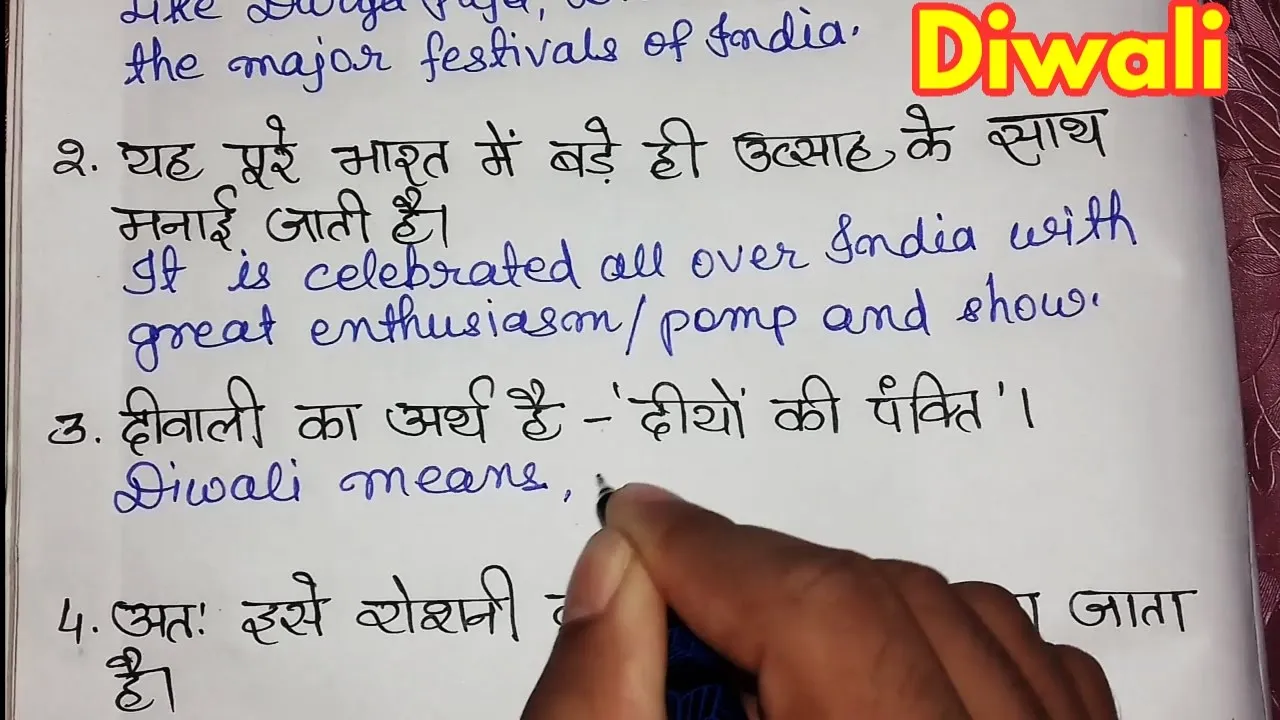 like Durga Puja,
the major festivals of India.
Diwali
२. यह पूरे भारत में बड़े ही उत्साह के साथ
मनाई जाती है।
It is celebrated all over India with
great enthusiasm/pomp and show.
३. दीवाली का अर्थ है -'दीयों की पंक्ति'।
Diwali means,
4. अतः इसे रोशनी जाता
है।